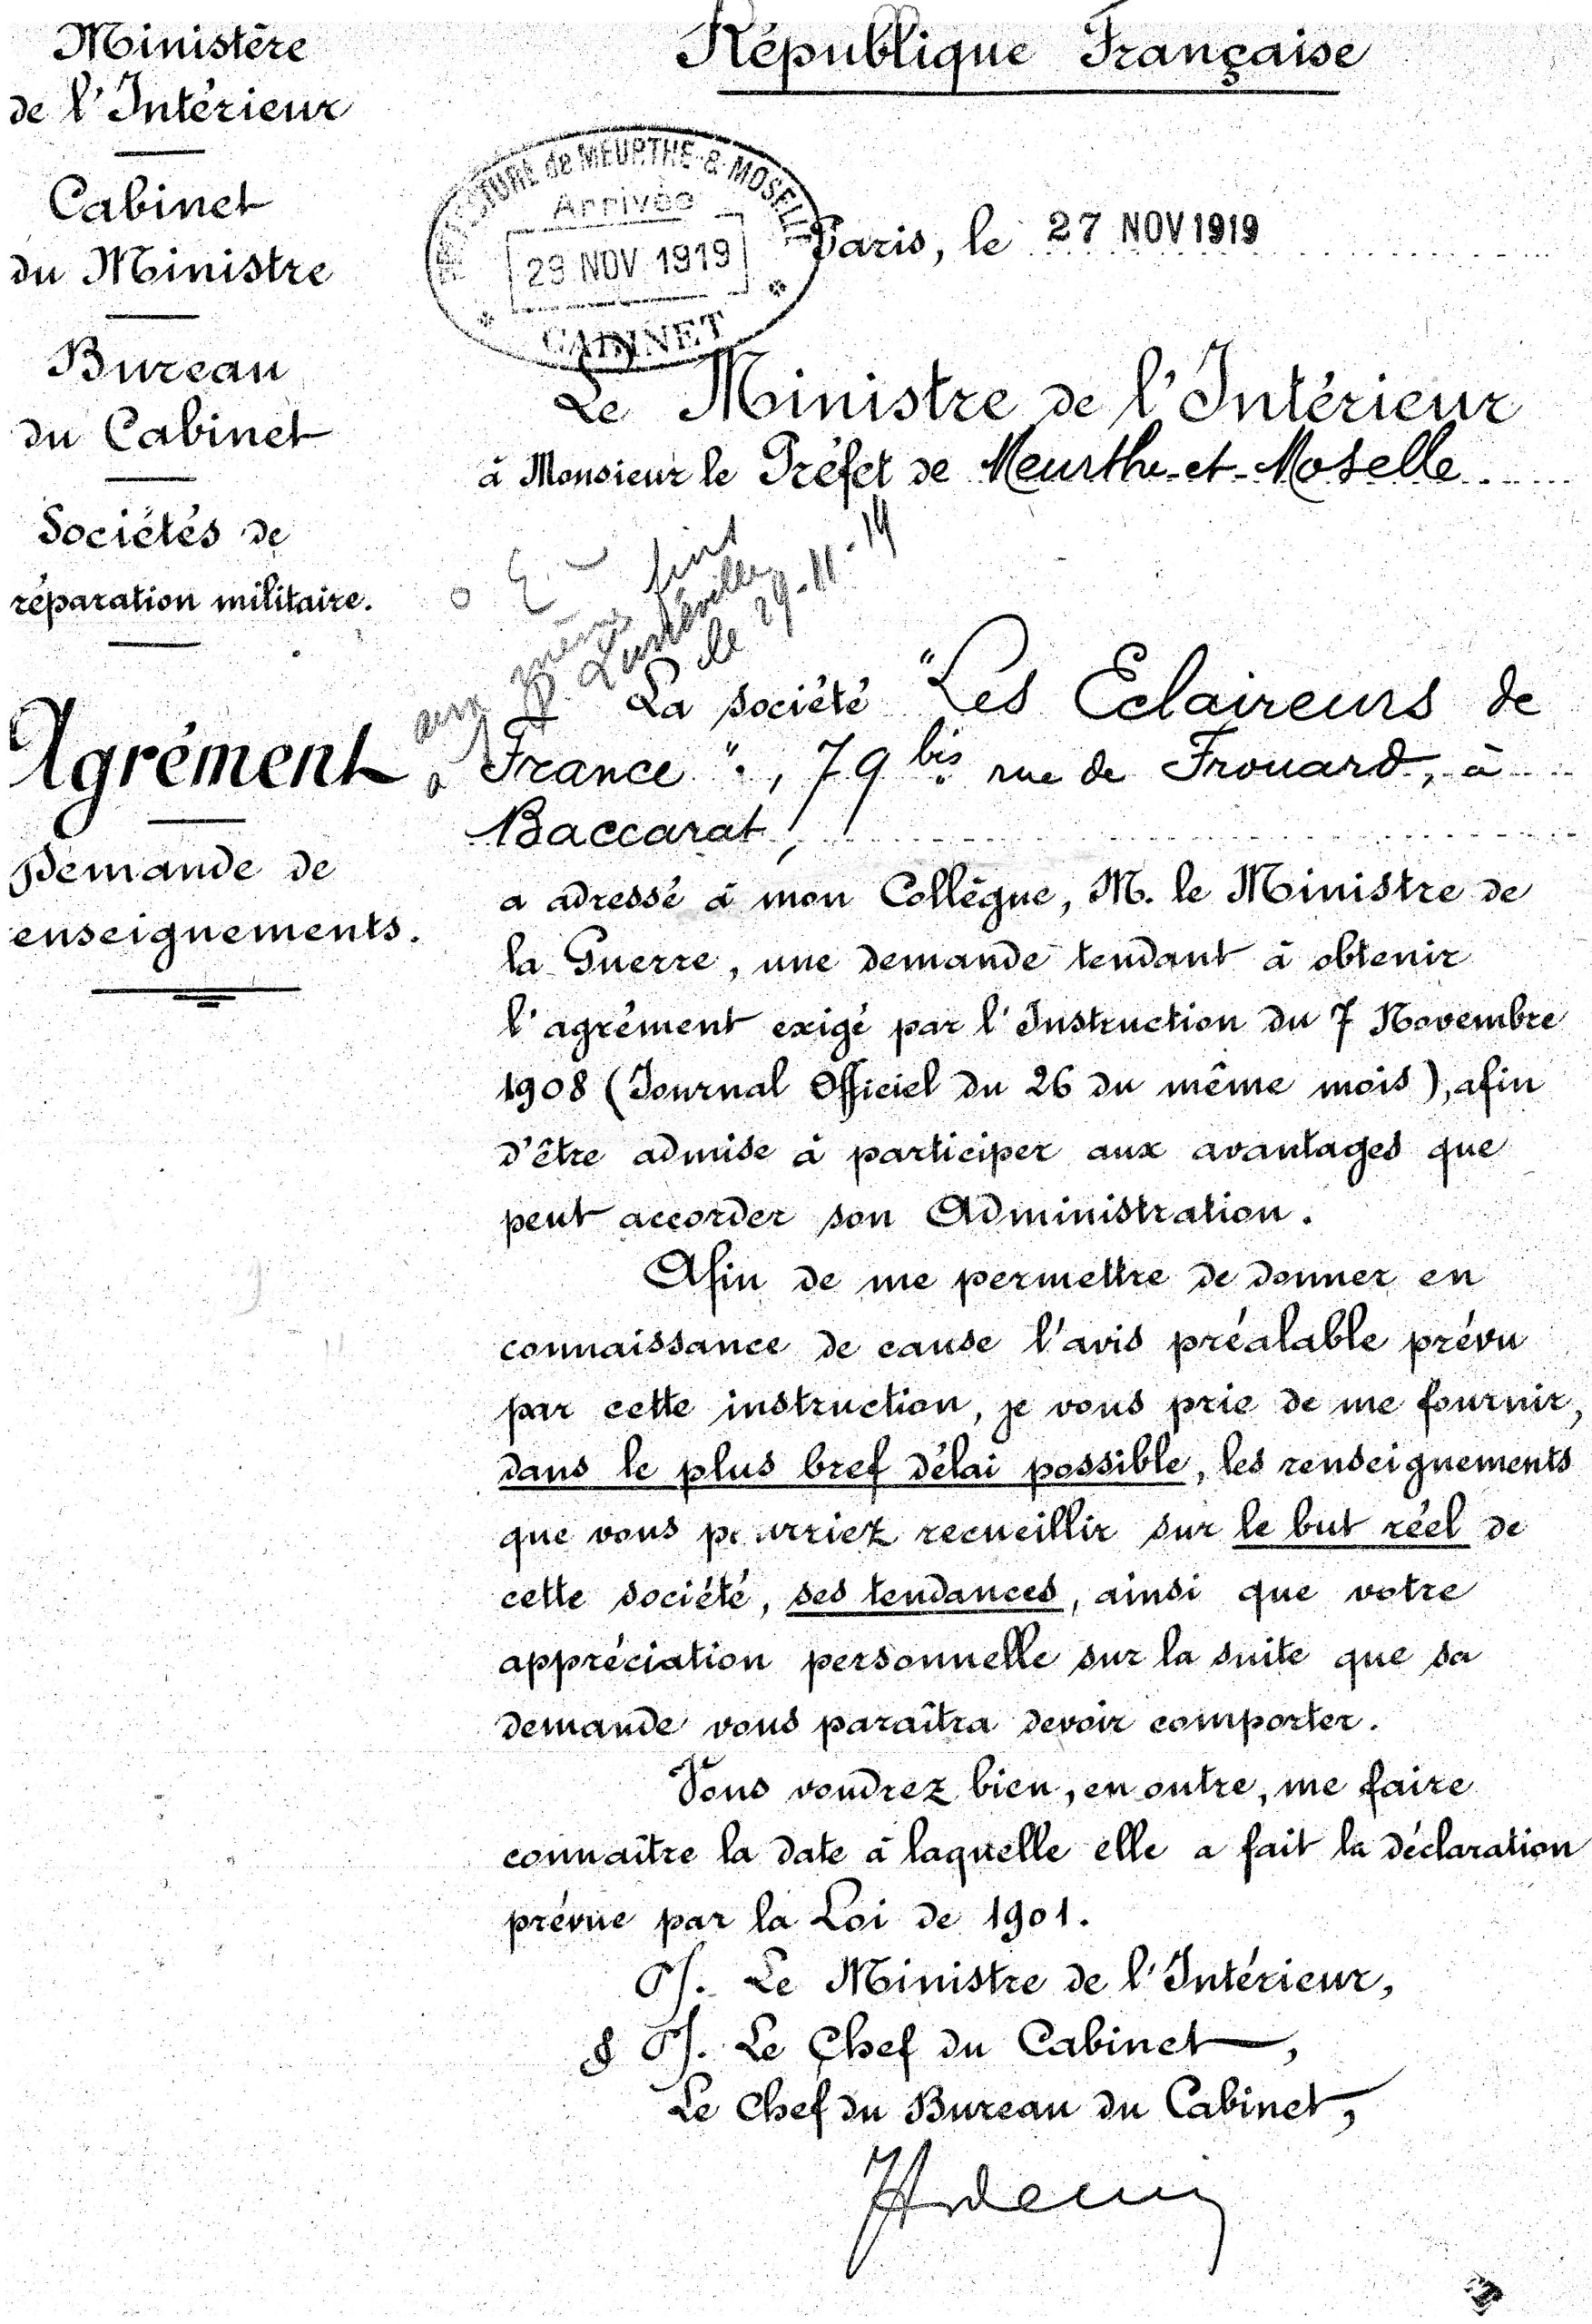 Ministère
de l'Intérieur
Cabinet
du Ministre
Bureau
du Cabinet
Sociétés de
réparation militaire.
Agrément
Demande de
enseignements.
République Française
PRÉFECTURE de MEURTHE & MOSELLE
Arrivée
29 NOV 1919
CABINET
Paris, le 27 NOV 1919
Le Ministre de l'Intérieur
à Monsieur le Préfet de Meurthe-et-Moselle
aux mêmes fins
Lunéville
le 29-11-19
La société "Les Eclaireurs de
France", 79 bis rue de Frouard, à
Baccarat,
a adressé à mon Collègue, M. le Ministre de
la Guerre, une demande tendant à obtenir
l'agrément exigé par l'Instruction du 7 Novembre
1908 (Journal Officiel du 26 du même mois), afin
d'être admise à participer aux avantages que
peut accorder son Administration.
Afin de me permettre de donner en
connaissance de cause l'avis préalable prévu
par cette instruction, je vous prie de me fournir,
dans le plus bref délai possible, les renseignements
que vous pourriez recueillir sur le but réel de
cette société, ses tendances, ainsi que votre
appréciation personnelle sur la suite que sa
demande vous paraîtra devoir comporter.
Vous voudrez bien, en outre, me faire
connaître la date à laquelle elle a fait la déclaration
prévue par la Loi de 1901.
P/. Le Ministre de l'Intérieur,
& P/. Le Chef du Cabinet,
Le Chef du Bureau du Cabinet,